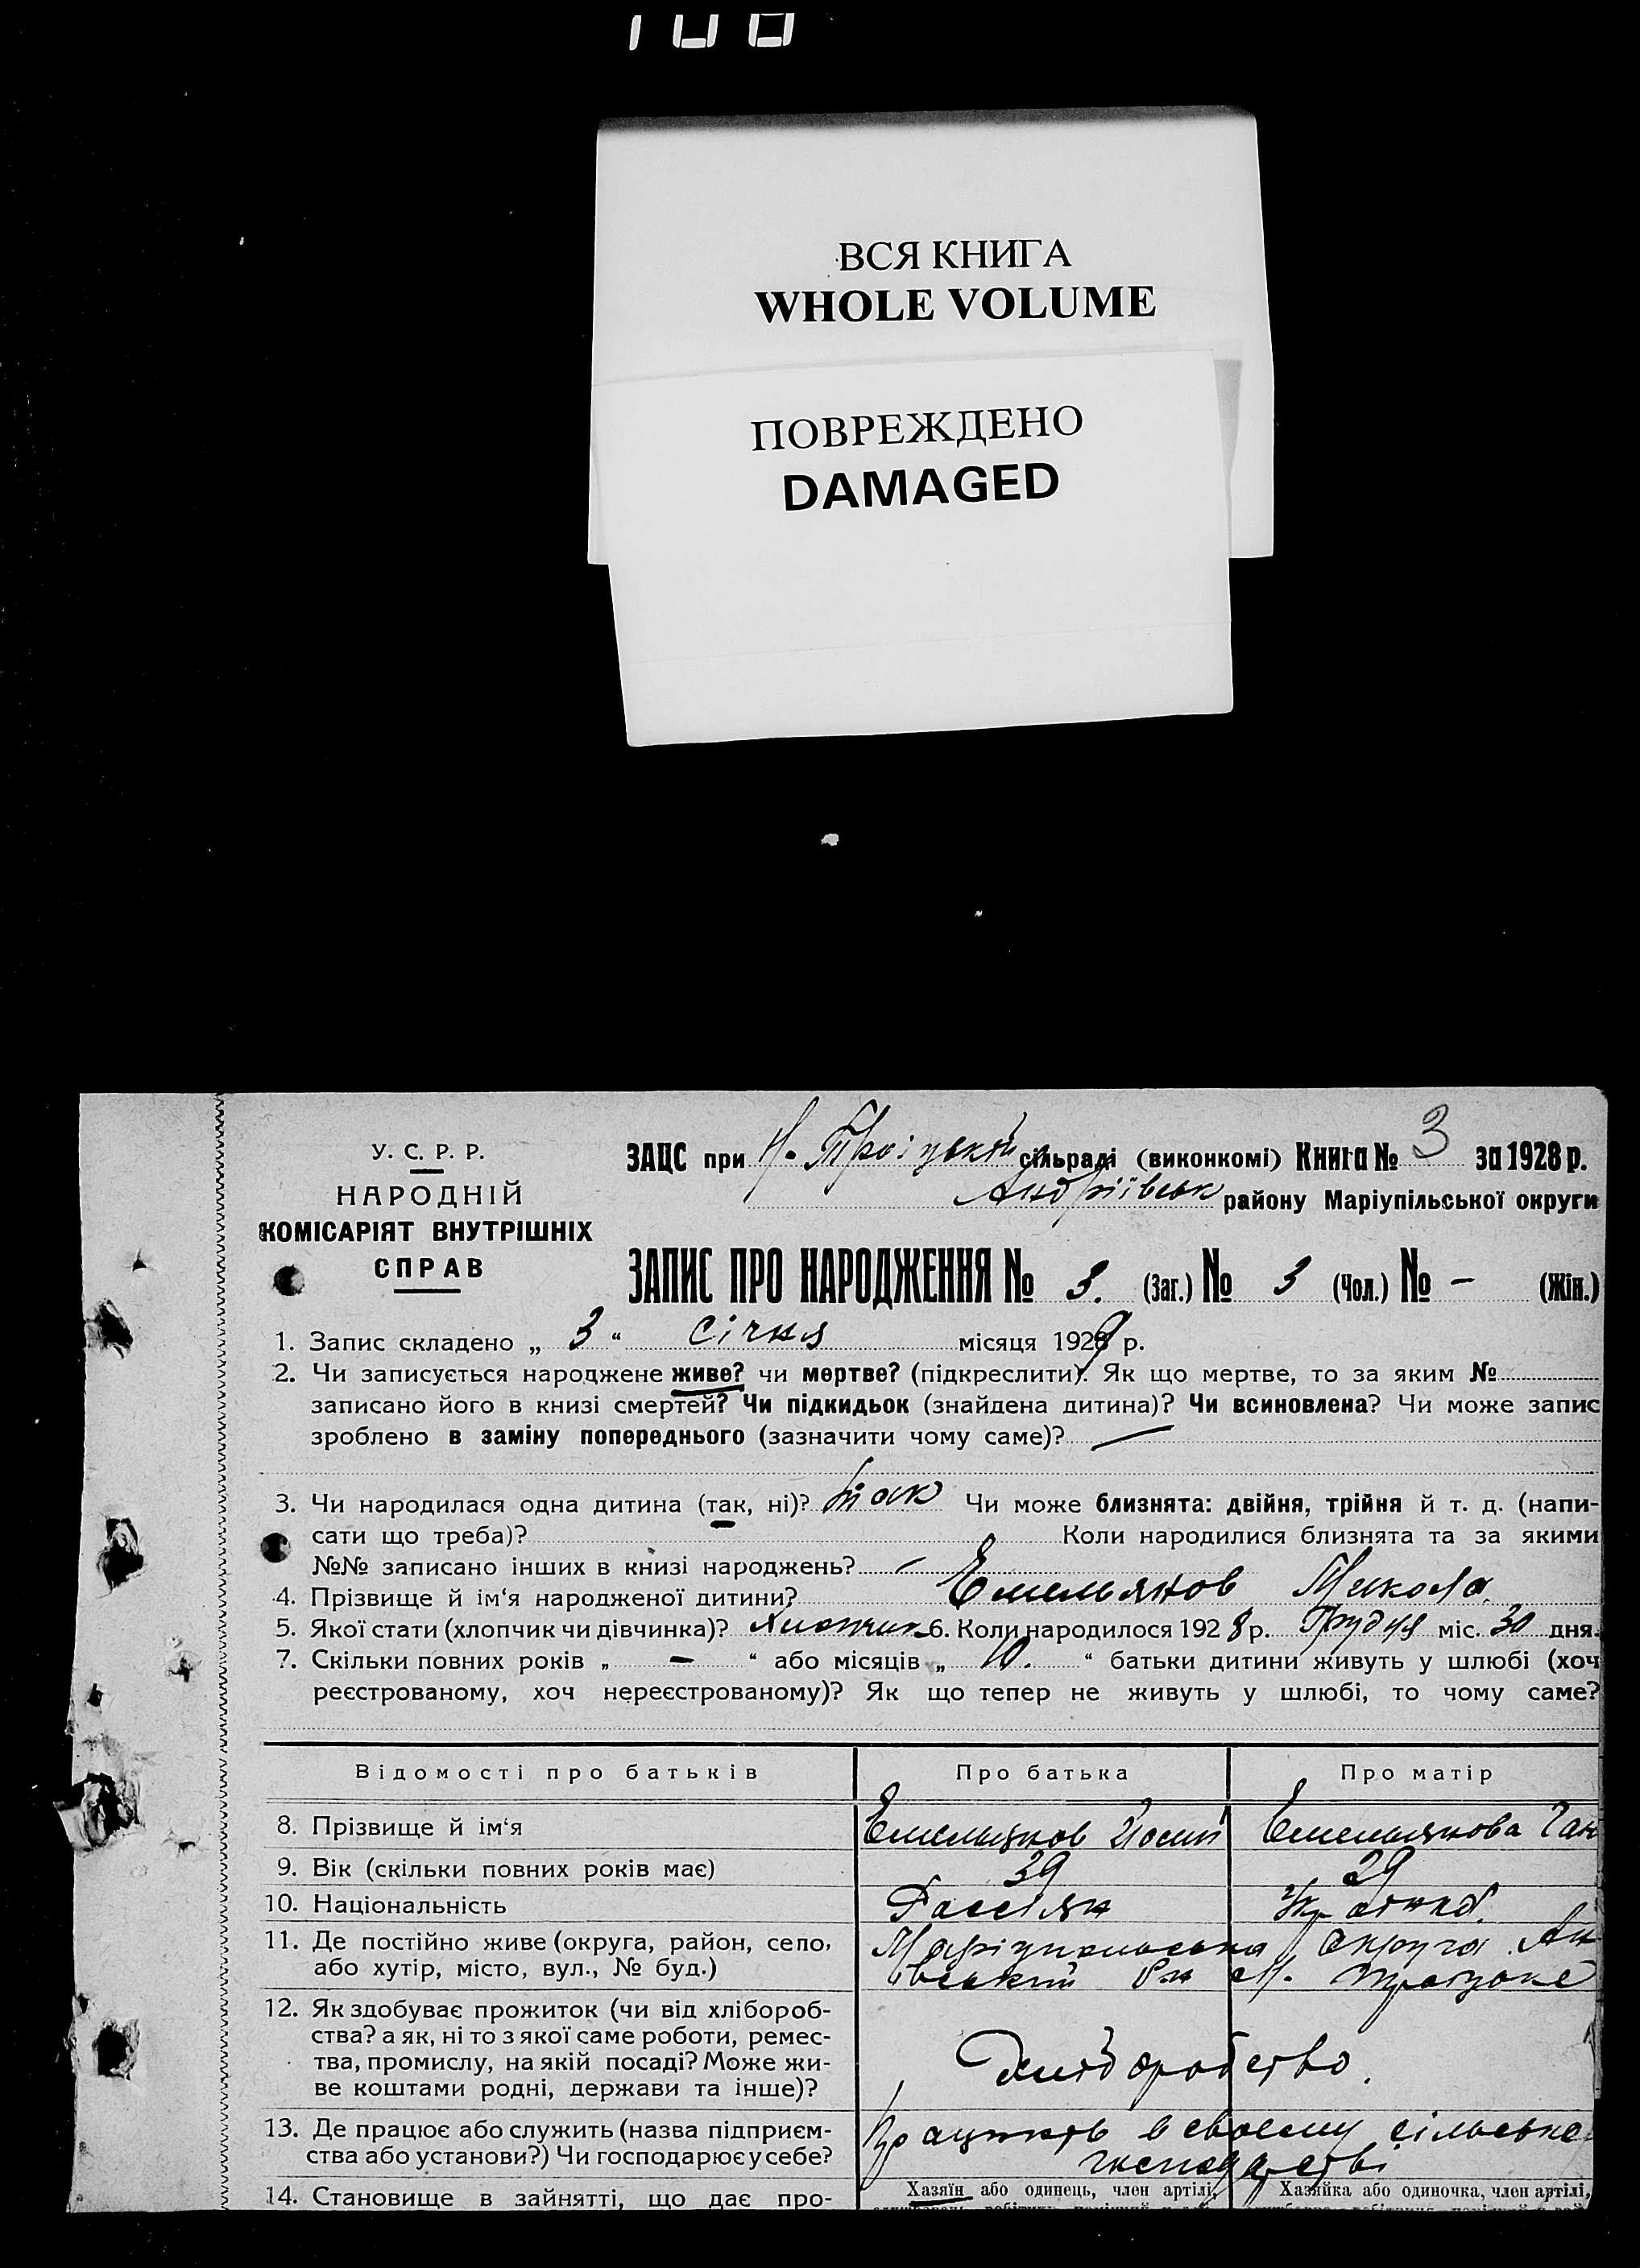 ВСЯ КНИГА
WHOLE VOLUME
ПОВРЕЖДЕНО
DAMAGED
У. С. Р. Р.
НАРОДНІЙ
КОМІСАРІЯТ ВНУТРІШНІХ
СПРАВ
ЗАЦС при Н-Троіцькій сільраді (виконкомі) Книга № 3 за 1928 р.
Андріївськ району Маріупільської округи
ЗАПИС ПРО НАРОДЖЕННЯ № 3. (Заг.) № 3 (Чол.) № – (Жін.)
1. Запис складено „ 3 “ Січня місяця 1929 р.
2. Чи записується народжене живе? чи мертве? (підкреслити). Як що мертве, то за яким №
записано його в книзі смертей? Чи підкидьок (знайдена дитина)? Чи всиновлена? Чи може запис
зроблено в заміну попереднього (зазначити чому саме)? —
3. Чи народилася одна дитина (так, ні)? так Чи може близнята: двійня, трійня й т. д. (напи-
сати що треба)? Коли народилися близнята та за якими
№№ записано інших в книзі народжень? –
4. Прізвище й ім‘я народженої дитини? Емельянов Микола
5. Якої стати (хлопчик чи дівчинка)? Хлопчик 6. Коли народилося 1928 р. Грудня міс. 30 дня.
7. Скільки повних років „ – “ або місяців „ 10. “ батьки дитини живуть у шлюбі (хоч
реєстрованому, хоч нереєстрованому)? Як що тепер не живуть у шлюбі, то чому саме?
Відомості про батьків Про батька Про матір
8. Прізвище й ім‘я Емельянов Йосип Емельянова Ган
9. Вік (скільки повних років має) 39 29
10. Національність Россіян Українка
11. Де постійно живе (округа, район, село, Маріупольська округа Ан
або хутір, місто, вул., № буд.) івський Р-н
12. Як здобуває прожиток (чи від хлібороб-
ства? а як, ні то з якої саме роботи, ремес-
тва, промислу, на якій посаді? Може жи-
ве коштами родні, держави та інше)?
Хліборобство.
13. Де працює або служить (назва підприєм- Працюють в своему сільсько
ства або установи?) Чи господарює у себе? господарстві
14. Становище в зайнятті, що дає про- Хазяїн або одинець, член артілі, Хазяйка або одиночка, член артілі,